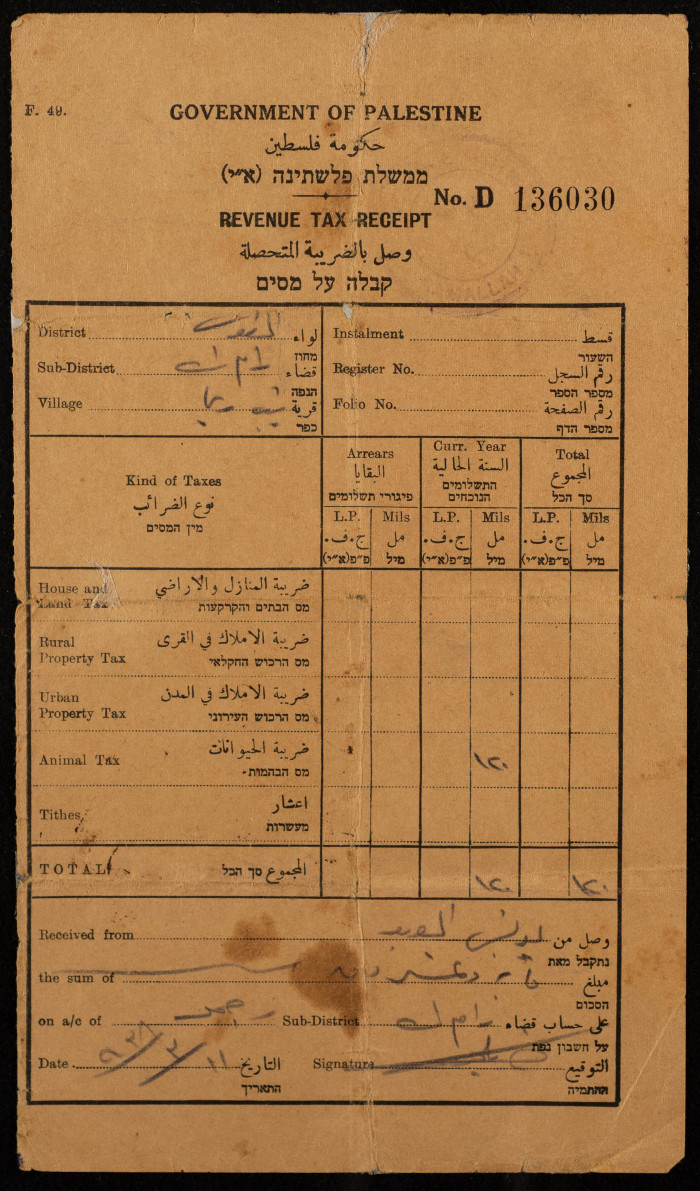 F. 49.
GOVERNMENT OF PALESTINE
حكومة فلسطين
ממשלת פלשתינה (א״י)
No. D 136030
REVENUE TAX RECEIPT
وصل بالضريبة المتحصلة
קבלה על מסים
District القدس لواء
מחוז
Sub-District رام الله قضاء
הנפה
Village قرية
כפר
Instalment قسط
השעור
Register No. رقم السجل
מספר הספר
Folio No. رقم الصفحة
מספר הדף
Kind of Taxes
نوع الضرائب
מין המסים
Arrears
البقايا
פיגורי תשלומים
Curr. Year
السنة الحالية
התשלומים
הנוכחים
Total
المجموع
סך הכל
L.P. Mils L.P. Mils L.P. Mils
ج.ف. مل ج.ف. مل ج.ف. مل
פ״פ(א״י) מיל פ״פ(א״י) מיל פ״פ(א״י) מיל
House and Land Tax ضريبة المنازل والاراضي
מס הבתים והקרקעות
Rural Property Tax ضريبة الاملاك في القرى
מס הרכוש החקלאי
Urban Property Tax ضريبة الاملاك في المدن
מס הרכוש העירוני
Animal Tax ضريبة الحيوانات ١٢٠
מס הבהמות
Tithes اعشار
מעשרות
TOTAL המجموع סך הכל ١٢٠ ١٢٠
Received from وصل من
נתקבל מאת
the sum of مبلغ
הסכום
on a/c of Sub-District رام الله على حساب قضاء
על חשבון נפת
Date ١١/٣/٩٣٨ التاريخ Signature التوقيع
התאריך החתימה